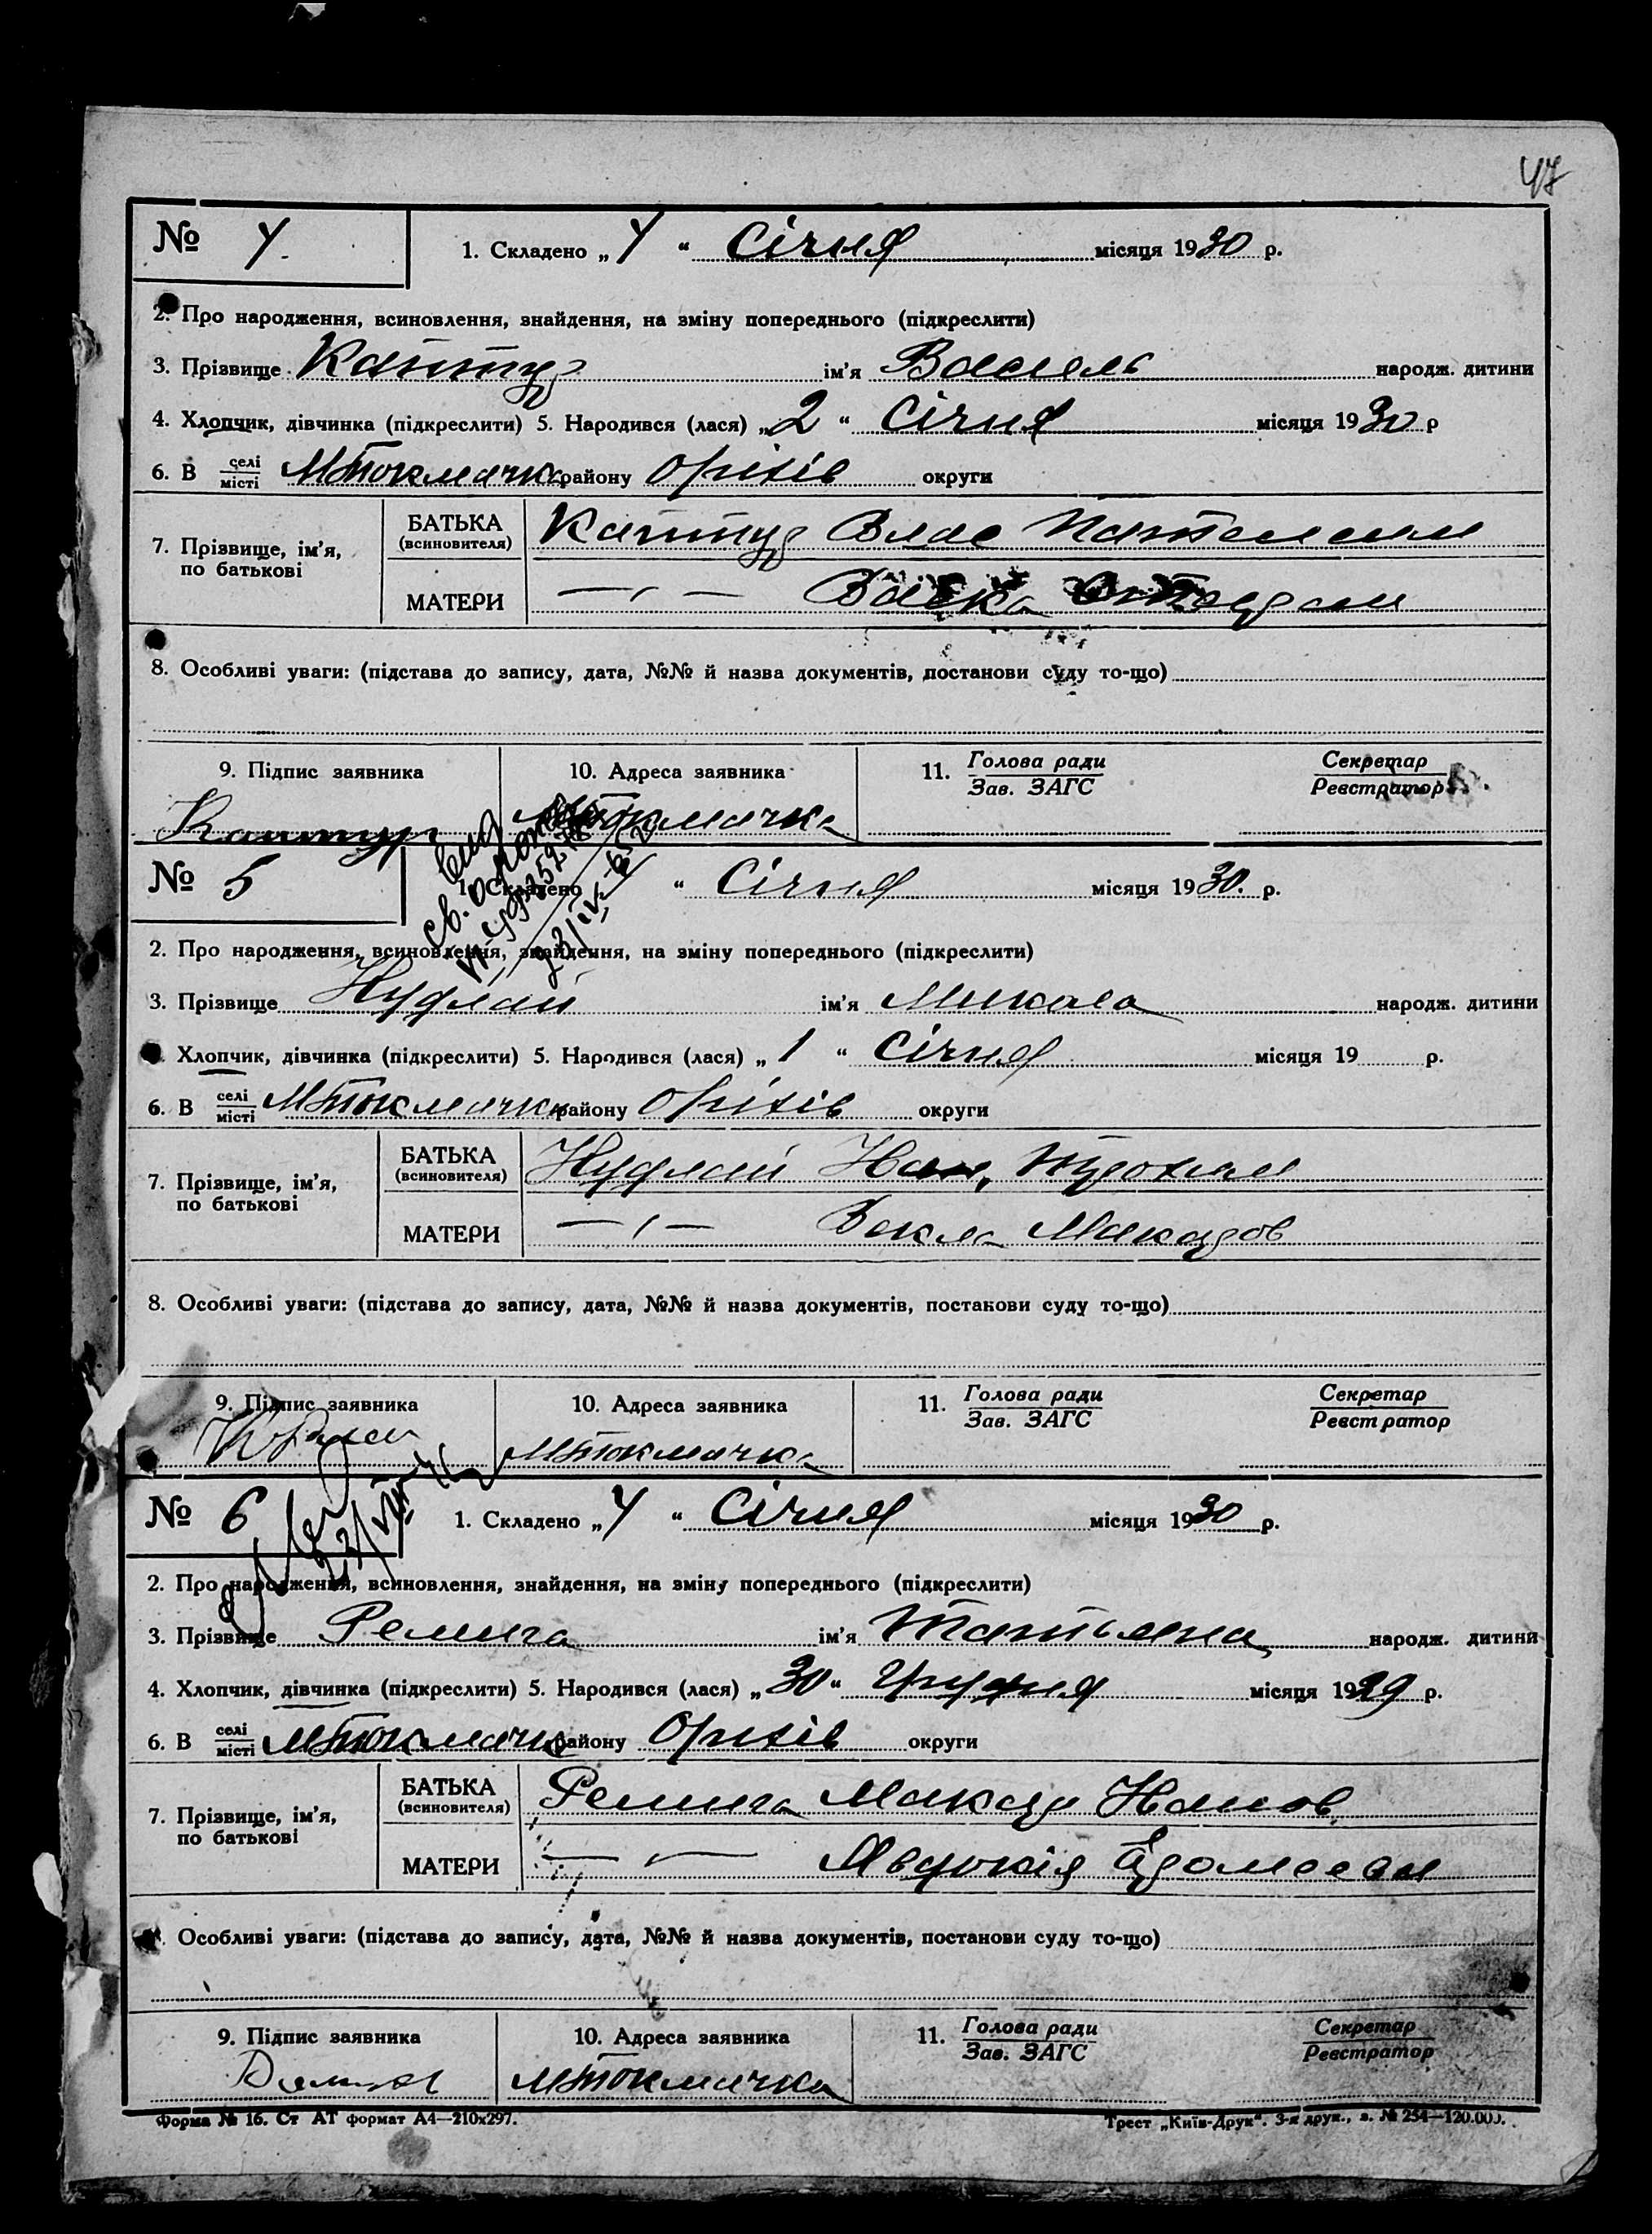 47
№ 4. 1. Складено „4“ Січня місяця 1930 р.
2. Про народження, всиновлення, знайдення, на зміну попереднього (підкреслити)
3. Прізвище Каптур ім'я Василь народж. дитини
4. Хлопчик, дівчинка (підкреслити) 5. Народився (лася) „2“ Січня місяця 1930 р
6. В селі місті МТокмачка району Оріхів округи
7. Прізвище, ім'я, по батькові
БАТЬКА (всиновителя) Каптур Влас Пантелеим
МАТЕРИ —„—
8. Особливі уваги: (підстава до запису, дата, №№ й назва документів, постанови суду то-що)
9. Підпис заявника 10. Адреса заявника 11. Голова ради Зав. ЗАГС Секретар Реєстратор
Каптур МТокмачка
№ 5 1. Складено “ Січня місяця 1930. р.
2. Про народження, всиновлення, знайдення, на зміну попереднього (підкреслити)
3. Прізвище ім'я Микола народж. дитини
Хлопчик, дівчинка (підкреслити) 5. Народився (лася) „1“ Січня місяця 19 р.
6. В селі місті МТокмачка району Оріхів округи
7. Прізвище, ім'я, по батькові
БАТЬКА (всиновителя)
МАТЕРИ —„— Векла Макаров
8. Особливі уваги: (підстава до запису, дата, №№ й назва документів, постанови суду то-що)
9. Підпис заявника 10. Адреса заявника 11. Голова ради Зав. ЗАГС Секретар Реєстратор
МТокмачка
№ 6 1. Складено „4“ Січня місяця 1930 р.
2. Про народження, всиновлення, знайдення, на зміну попереднього (підкреслити)
3. Прізвище Ремига ім'я Татьяна народж. дитини
4. Хлопчик, дівчинка (підкреслити) 5. Народився (лася) „30“ Грудня місяця 1929 р.
6. В селі місті МТокмачка району Оріхів округи
7. Прізвище, ім'я, по батькові
БАТЬКА (всиновителя) Ремига Макар Иванов
МАТЕРИ —„— Явдокія
Особливі уваги: (підстава до запису, дата, №№ й назва документів, постанови суду то-що)
9. Підпис заявника 10. Адреса заявника 11. Голова ради Зав. ЗАГС Секретар Реєстратор
МТокмачка
Форма № 16. Ст АТ формат А4—210х297. Трест „Київ-Друк“. 3-я друк., з. № 254—120.000.